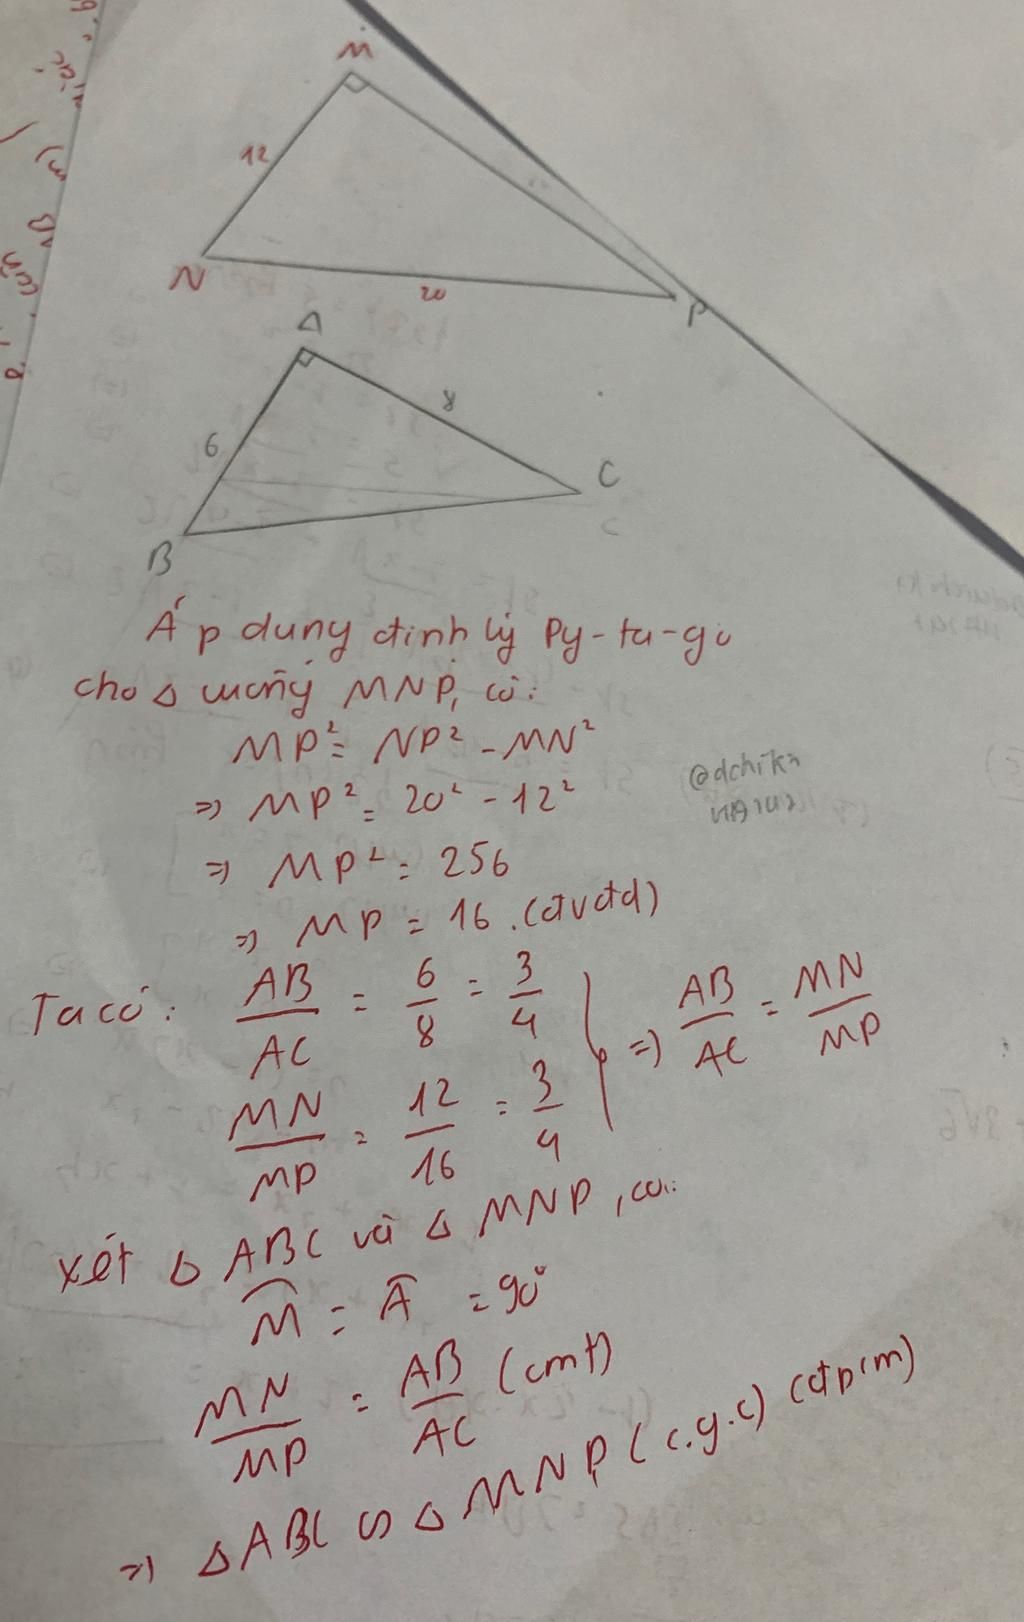 M
12
N
20
P
A
8
6
C
C
B
Áp dung định lý Py-ta-go
cho Δ vuông MNP, có:
MP² = NP² - MN²
⇒ MP² = 20² - 12²
⇒ MP² = 256
@dchikn
⇒ MP = 16. (đvđd)
Ta có: AB/AC = 6/8 = 3/4
MN/MP = 12/16 = 3/4
} ⇒ AB/AC = MN/MP
Xét Δ ABC và Δ MNP, có:
M̂ = Â = 90°
MN/MP = AB/AC (cmt)
⇒ Δ ABC ∽ Δ MNP (c.g.c) (đpcm)